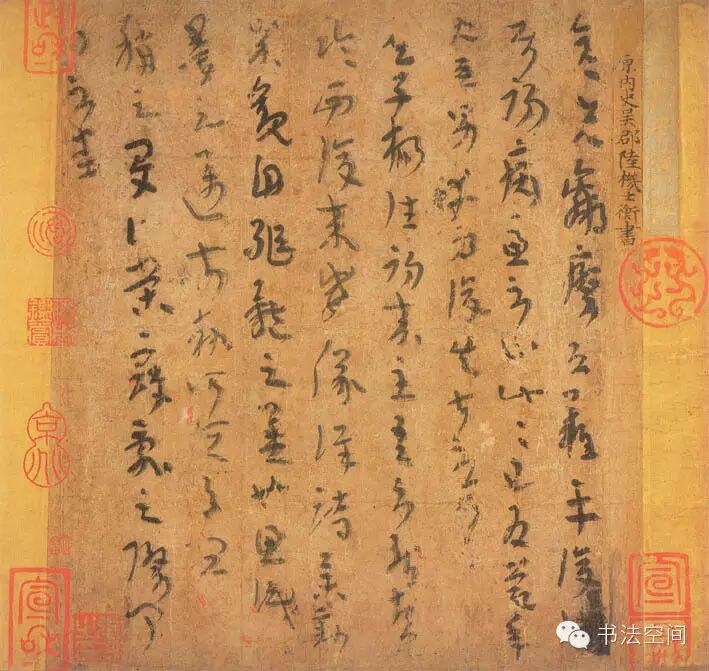 原内史吳郡陸機士衡書
彦先羸瘵恐難平復往屬
初病慮不止此此已為慶承
使唯男幸為復失前憂耳
吳子楊往初來主吾不能盡
臨西復來威儀詳跱舉動
成觀自軀體之美也思識
量之邁前執所恒有宜
稱之夏伯榮寇亂之際聞
問不悉
宣和
书法空间